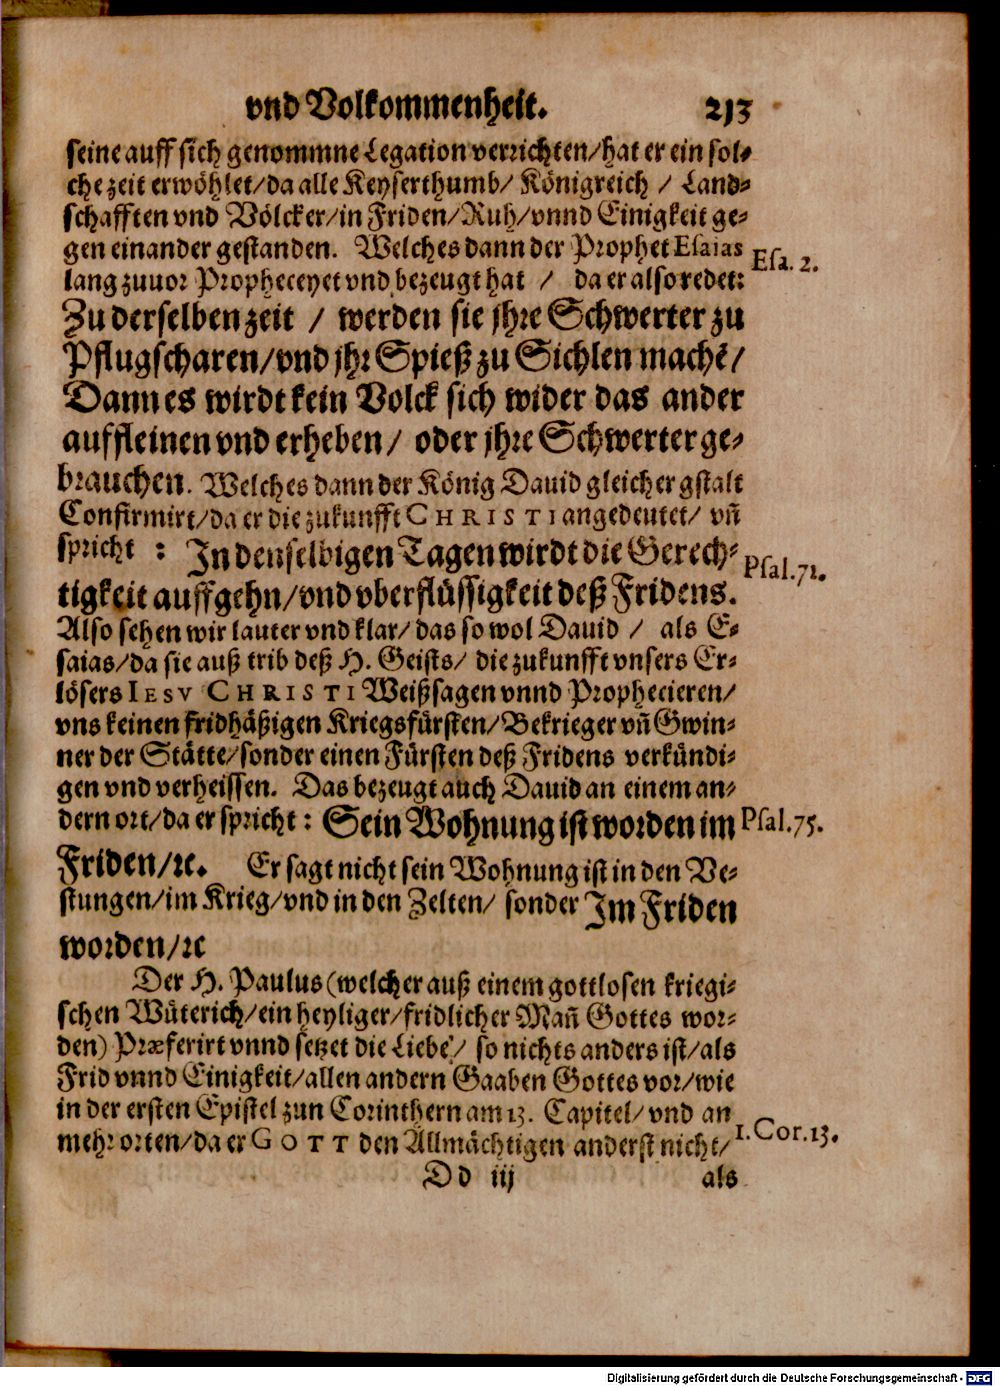 vnd Volkommenheit. 213
seine auff sich genommne Legation verrichten/hat er ein sol-
che zeit erwöhlet/da alle Keyserthumb/ Königreich / Land-
schafften vnd Völcker/in Friden/Ruh/vnnd Einigkeit ge-
gen einander gestanden. Welches dann der Prophet Esaias
Esa. 2.
lang zuuor Propheceyet vnd bezeugt hat / da er also redet:
Zu derselben zeit / werden sie jhre Schwerter zu
Pflugscharen/vnd jhr Spieß zu Sichlen machē/
Dann es wirdt kein Volck sich wider das ander
auffleinen vnd erheben/ oder jhre Schwerter ge-
brauchen. Welches dann der König Dauid gleicher gstalt
Confirmirt/da er die zukunfft CHRISTI angedeutet/ vn̄
spricht : In denselbigen Tagen wirdt die Gerech-
Psal.71.
tigkeit auffgehn/vnd vberflüssigkeit deß Fridens.
Also sehen wir lauter vnd klar/ das so wol Dauid / als E-
saias/da sie auß trib deß H. Geists/ die zukunfft vnsers Er-
lösers IESV CHRISTI Weißsagen vnnd Prophecieren/
vns keinen fridhäßigen Kriegsfürsten/Bekrieger vn̄ Gwin-
ner der Stätte/sonder einen Fürsten deß Fridens verkündi-
gen vnd verheissen. Das bezeugt auch Dauid an einem an-
dern ort/da er spricht : Sein Wohnung ist worden im
Psal.75.
Friden/ꝛc. Er sagt nicht sein Wohnung ist in den Ve-
stungen/im Krieg/vnd in den Zelten/ sonder Im Friden
worden/ꝛc
Der H. Paulus (welcher auß einem gottlosen kriegi-
schen Wüterich/ein heyliger/fridlicher Man̄ Gottes wor-
den) Præferirt vnnd setzet die Liebe/ so nichts anders ist/als
Frid vnnd Einigkeit/allen andern Gaaben Gottes vor/wie
in der ersten Epistel zun Corinthern am 13. Capitel/ vnd an
mehr orten/da er GOTT den Allmächtigen anderst nicht/
1.Cor.13.
Dd iij als
Digitalisierung gefördert durch die Deutsche Forschungsgemeinschaft - DFG